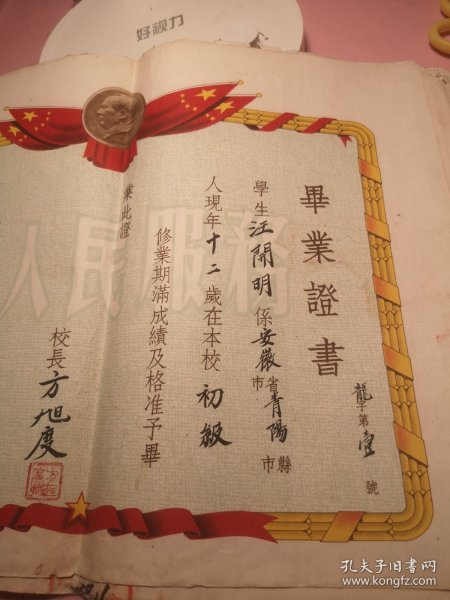 好视力
畢業證書
龍字第壹號
學生汪開明係安徽省市青陽縣市
人現年十二歲在本校初級
修業期滿成績及格准予畢
業此證
校長方旭度
人民服務
孔夫子旧书网
www.kongfz.com